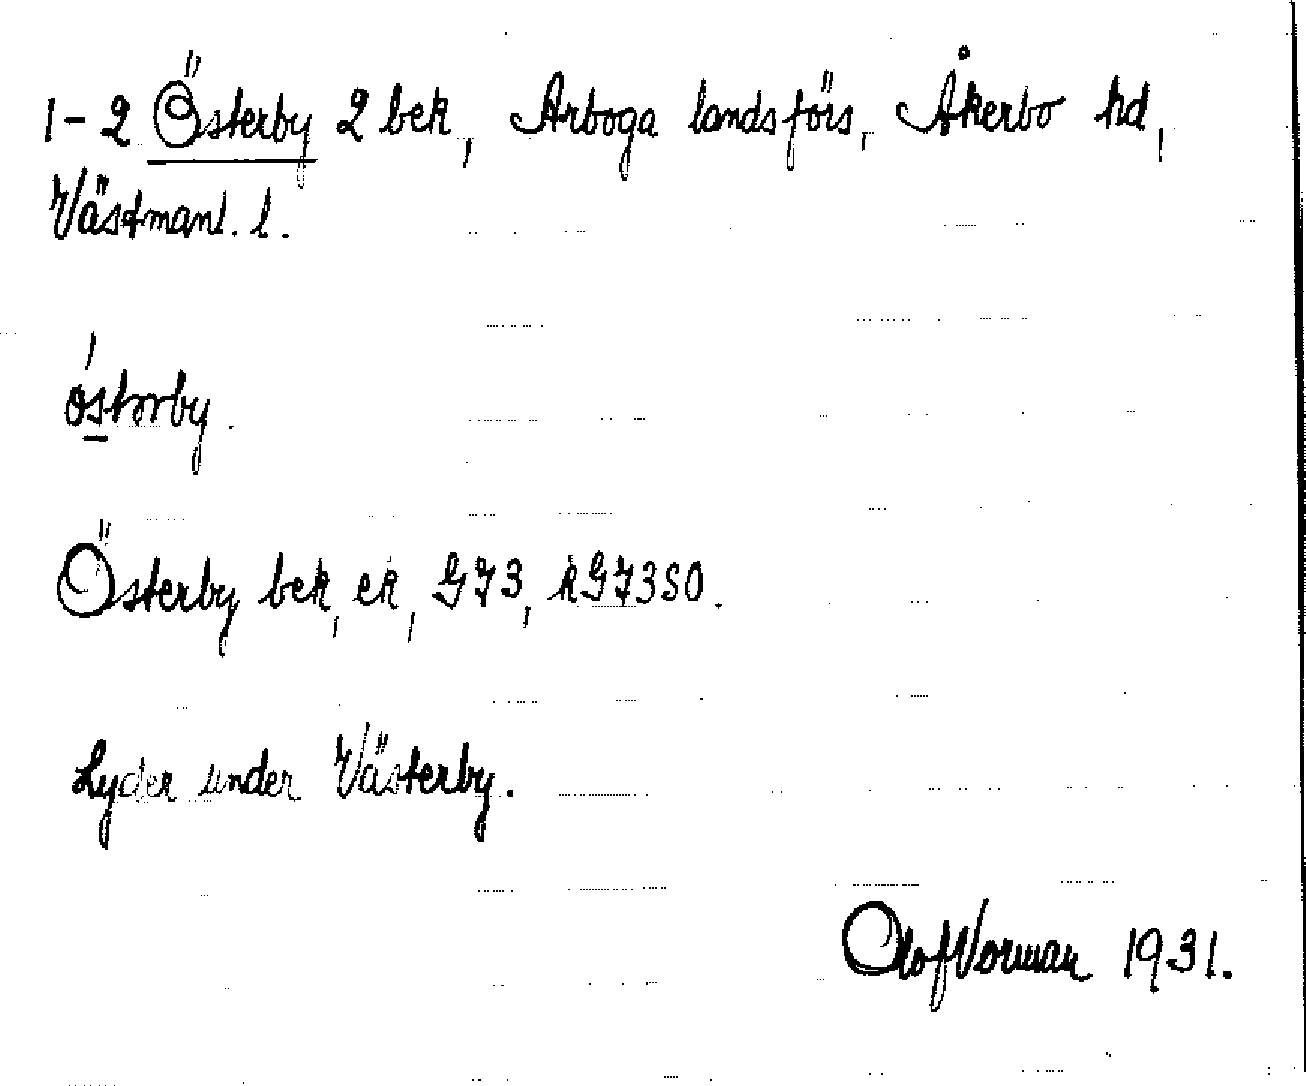 1-2 Österby 2 bek, Arboga landsförs, Åkerbo hd,
Västmanl. l.
östorby.
Österby bek, ek, GJ3, kGJ3SO.
Lyder under Västerby.
Olof Norman 1931.